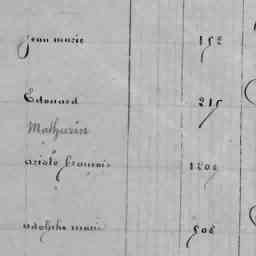 Jean marie 152
Edouard 215
Mathurin
aristo françois 1206
adolphe marie 506